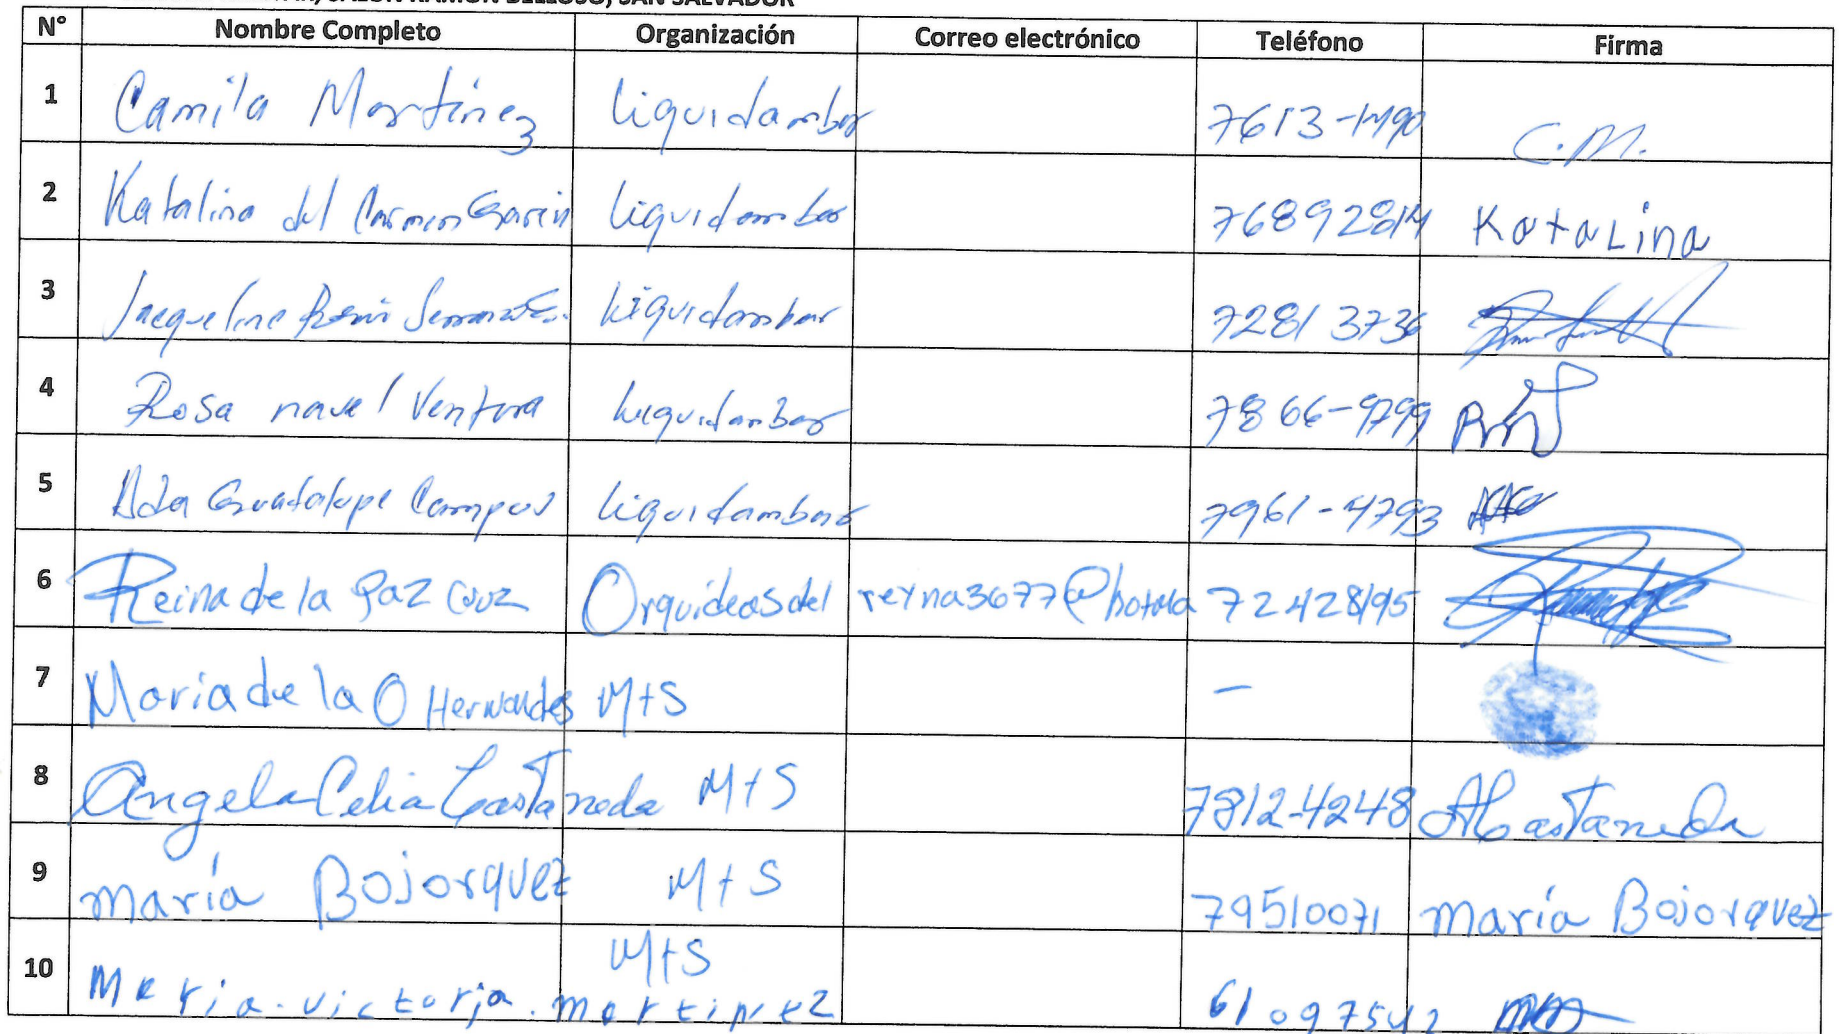 SALÓN RAMÓN BELLOSO, SAN SALVADOR
N° Nombre Completo Organización Correo electrónico Teléfono Firma
1 Camila Martinez Liquidambar 7613-1490 C.M.
2 Katalina del Carmen Garcia Liquidambar 76892814 KataLina
3 Jacqueline Liquidambar 7281 3736
4 Rosa Ventura Liquidambar 7866-9799
5 Ada Guadalupe Campos Liquidambar 7961-4793
6 Reina de la Paz Cruz Orquideas del reyna3677@ 72428195
7 Maria de la O Hernandes M+S -
8 Angela Celia Castaneda M+S 7812-4248 ACastaneda
9 maría Bojorquez M+S 79510071 maría Bojorquez
10 Maria. victoria. martinez M+S